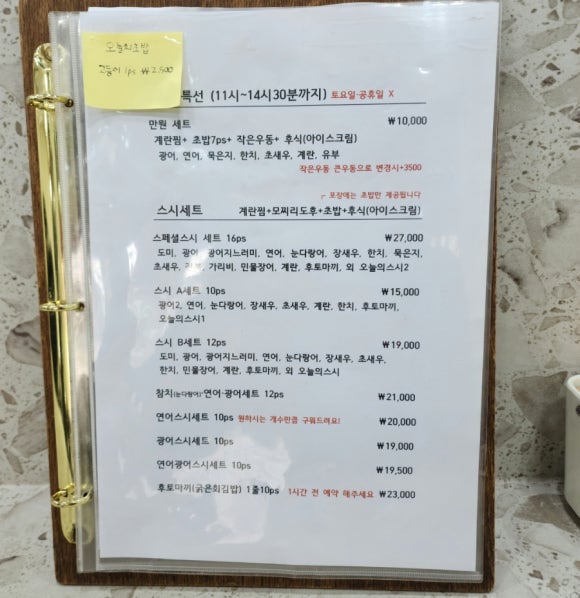 오늘의초밥
고등어 1ps ₩2,500
특선 (11시~14시30분까지) 토요일-공휴일 X
만원 세트 ₩10,000
계란찜+ 초밥7ps+ 작은우동+ 후식(아이스크림)
광어, 연어, 묵은지, 한치, 초새우, 계란, 유부
작은우동 큰우동으로 변경시+3500
┌ 포장에는 초밥만 제공됩니다
스시세트 계란찜+모찌리도후+초밥+후식(아이스크림)
스페셜스시 세트 16ps ₩27,000
도미, 광어, 광어지느러미, 연어, 눈다랑어, 장새우, 한치, 묵은지,
초새우, 가리비, 민물장어, 계란, 후토마끼, 외 오늘의스시2
스시 A세트 10ps ₩15,000
광어2, 연어, 눈다랑어, 장새우, 초새우, 계란, 한치, 후토마끼,
오늘의스시1
스시 B세트 12ps ₩19,000
도미, 광어, 광어지느러미, 연어, 눈다랑어, 장새우, 초새우,
한치, 민물장어, 계란, 후토마끼, 외 오늘의스시
참치(눈다랑어)·연어·광어세트 12ps ₩21,000
연어스시세트 10ps 원하시는 개수만큼 구워드려요! ₩20,000
광어스시세트 10ps ₩19,000
연어광어스시세트 10ps ₩19,500
후토마끼(굵은회김밥) 1줄10ps 1시간 전 예약 해주세요 ₩23,000